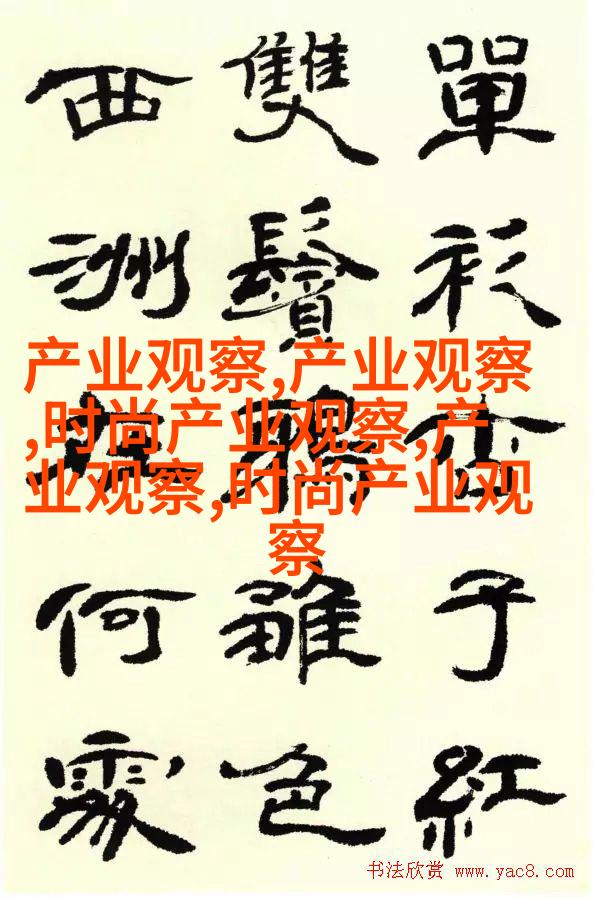 單衫杏子紅
雙鬢鴉雛色
西洲在何處
产业观察,产业观察
,时尚产业观察,产
业观察,时尚产业观
察
书法欣赏 www.yac8.com